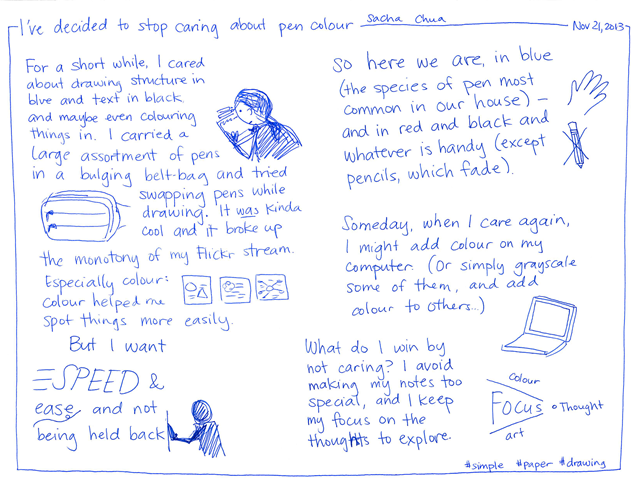 I've decided to stop caring about pen colour
Sacha Chua
Nov 21, 2013
For a short while, I cared
about drawing structure in
blue and text in black,
and maybe even colouring
things in. I carried a
large assortment of pens
in a bulging belt-bag and tried
swapping pens while
drawing. It was kinda
cool and it broke up
the monotony of my Flickr stream.
Especially colour:
colour helped me
spot things more easily.
But I want
SPEED &
ease and not
being held back
So here we are, in blue
(the species of pen most
common in our house) –
and in red and black and
whatever is handy (except
pencils, which fade).
Someday, when I care again,
I might add colour on my
computer. (Or simply grayscale
some of them, and add
colour to others...)
What do I win by
not caring? I avoid
making my notes too
special, and I keep
my focus on the
thoughts to explore.
colour
FOCUS
Thought
art
#simple #paper #drawing